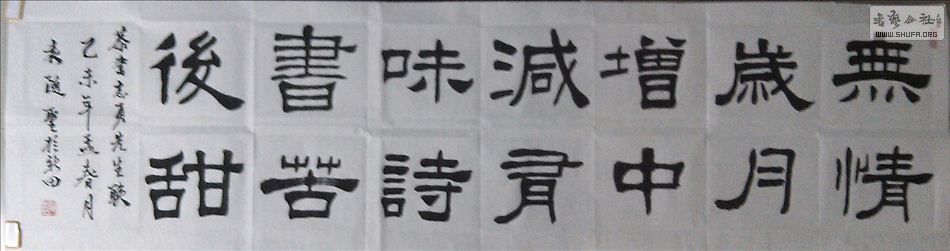 無情
歲月
增中
減有
味詩
書苦
後甜
恭書志勇先生联
乙未年孟春月
聖於
書藝公社
WWW.SHUFA.ORG